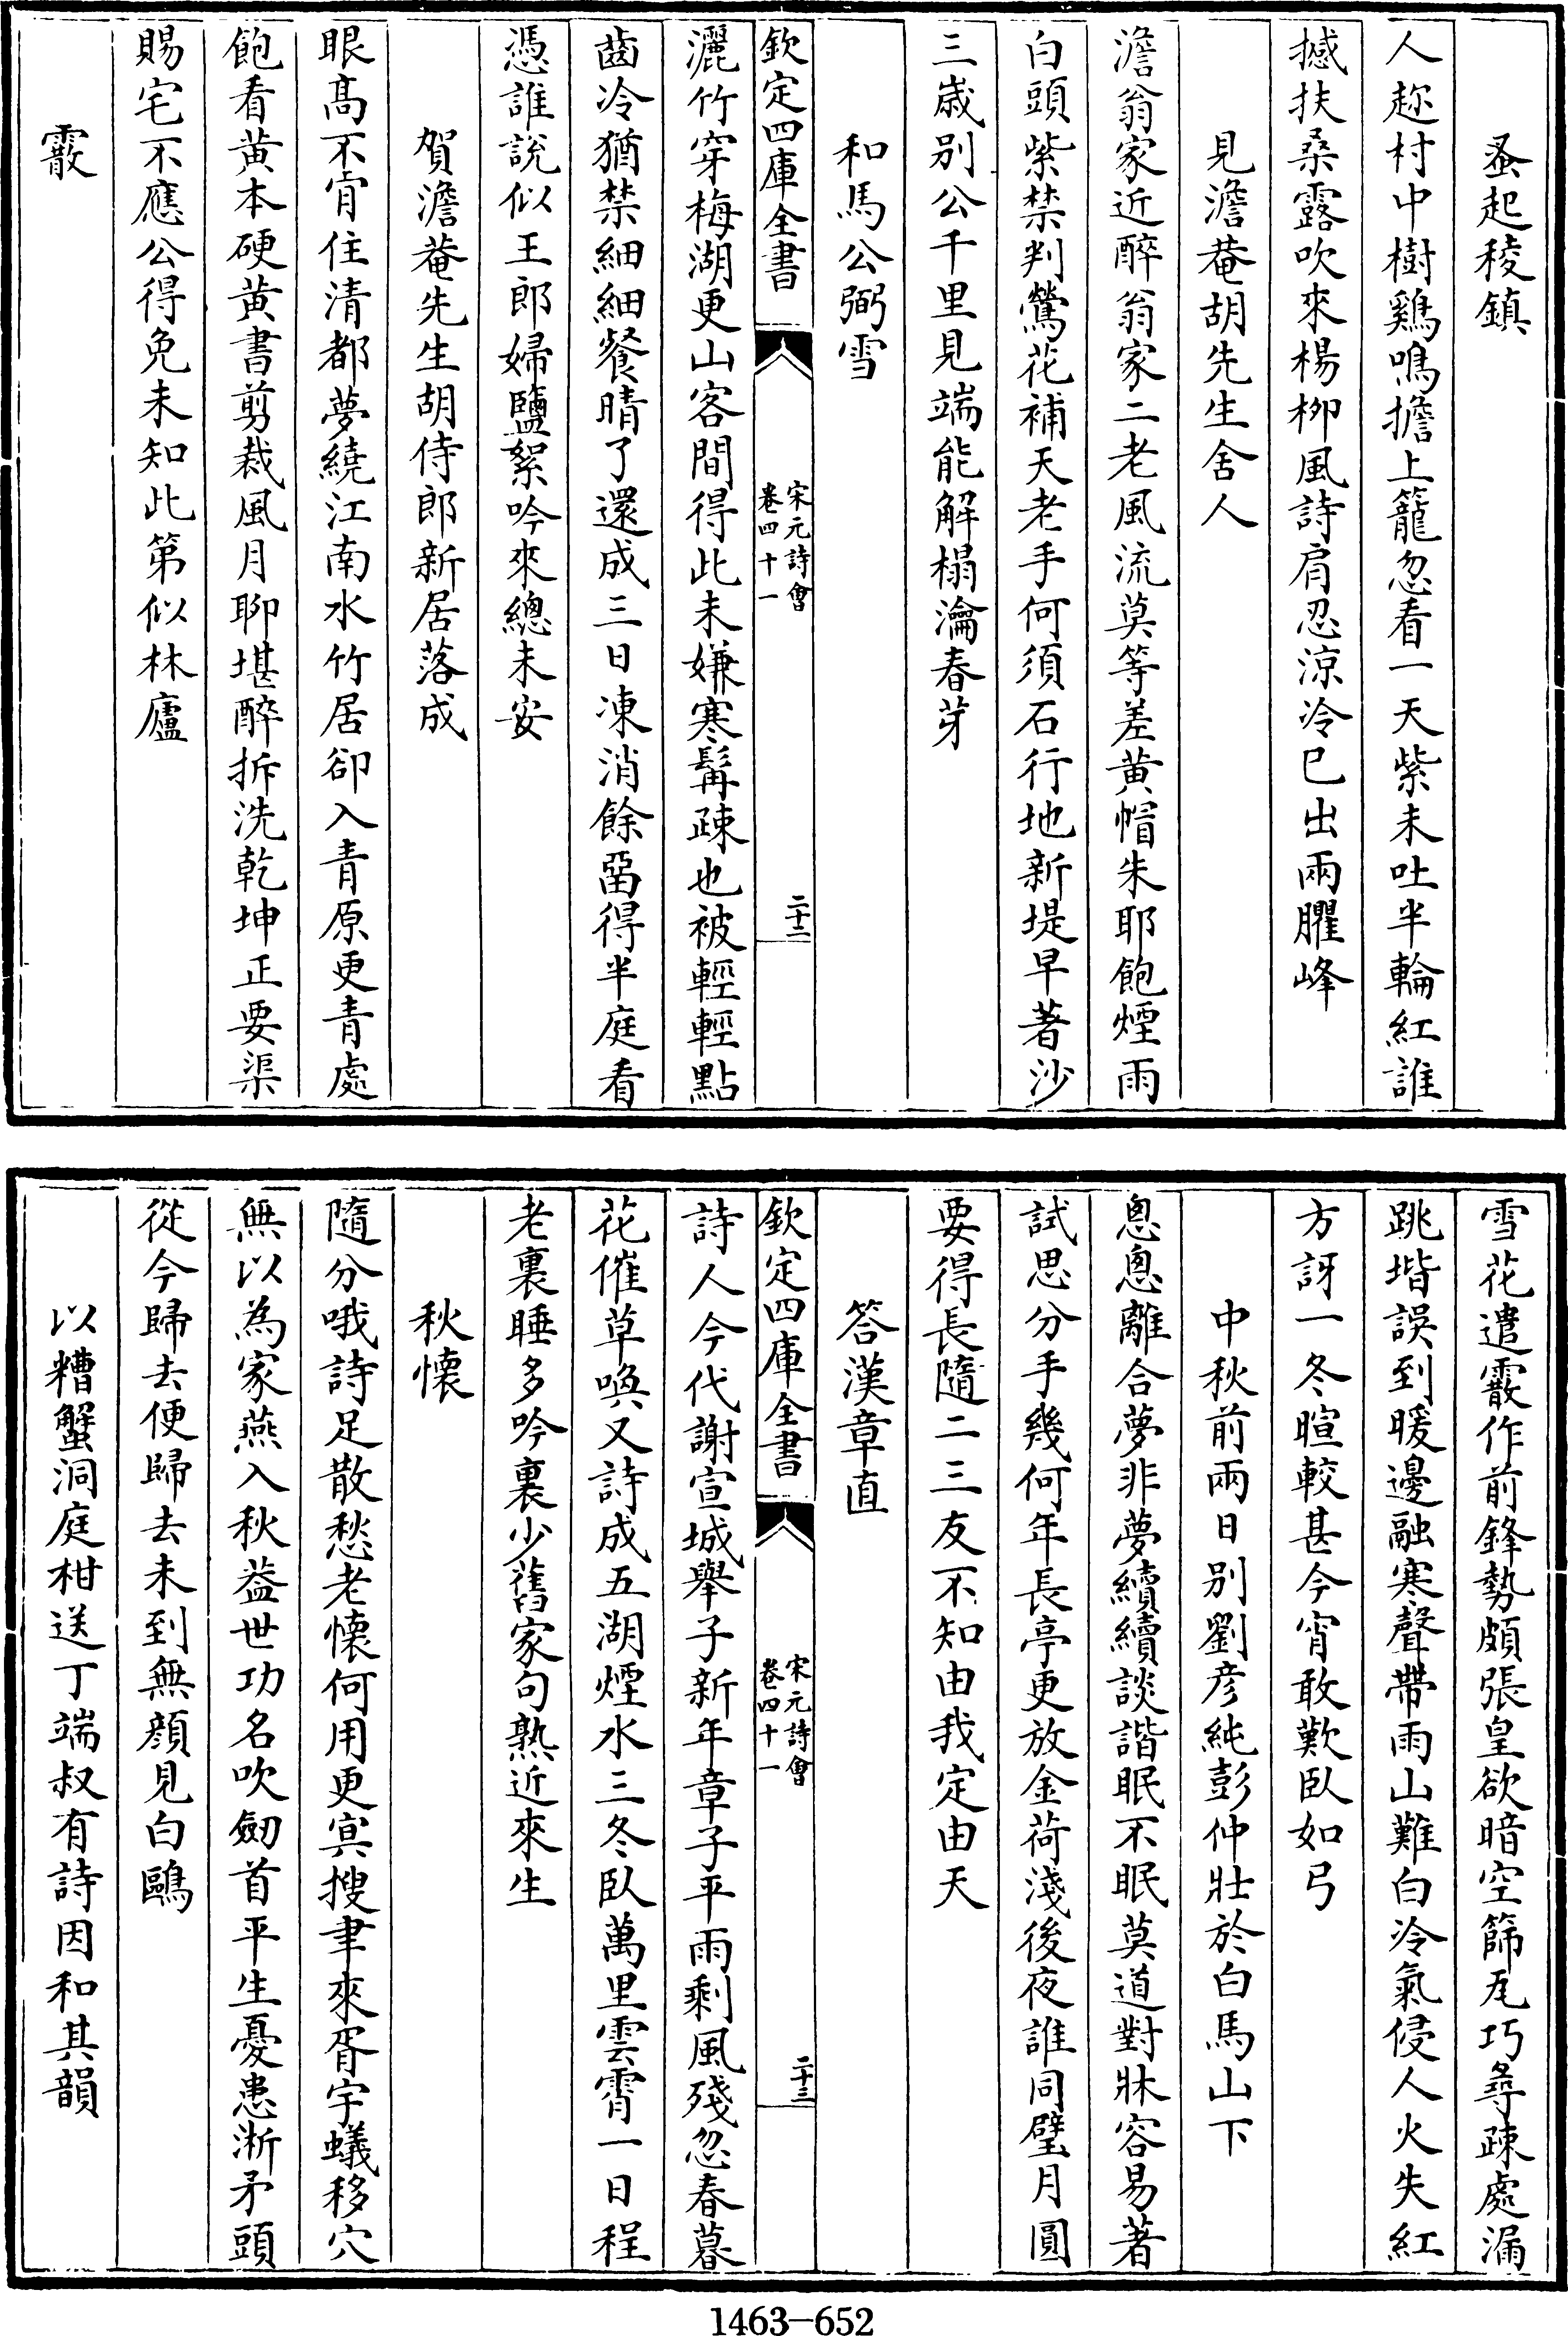 蚤起稜鎮
人趂村中樹鷄鳴擔上籠忽看一天紫未吐半輪紅誰
撼扶桑露吹來楊栁風詩肩忍涼冷已出兩臞峰
見澹菴胡先生舍人
澹翁家近醉翁家二老風流莫等差黄帽朱耶飽煙雨
白頭紫禁判鶯花補天老手何須石行地新堤早著沙
三嵗别公千里見端能解榻瀹春芽
和馬公弼雪
欽定四庫全書
宋元詩會
卷四十一
二十二
灑竹穿梅湖更山客間得此未嫌寒髯疎也被輕輕點
齒冷猶禁細細餐晴了還成三日凍消餘畱得半庭看
憑誰說似王郎婦鹽絮吟來總未安
賀澹菴先生胡侍郎新居落成
眼髙不肎住清都夢繞江南水竹居卻入青原更青處
飽看黄本硬黄書剪裁風月聊堪醉拆洗乾坤正要渠
賜宅不應公得免未知此第似林廬
霰
雪花遣霰作前鋒勢頗張皇欲暗空篩瓦巧尋疎處漏
跳堦誤到暖邊融寒聲帶雨山難白冷氣侵人火失紅
方訝一冬暄較甚今宵敢歎卧如弓
中秋前兩日别劉彦純彭仲壯於白馬山下
悤悤離合夢非夢續續談諧眠不眠莫道對牀容易著
試思分手幾何年長亭更放金荷淺後夜誰同璧月圓
要得長隨二三友不知由我定由天
答漢章直
欽定四庫全書
宋元詩會
卷四十一
二十三
詩人今代謝宣城舉子新年章子平雨剩風殘忽春暮
花催草喚又詩成五湖煙水三冬卧萬里雲霄一日程
老裏睡多吟裏少舊家句熟近來生
秋懷
隨分哦詩足散愁老懷何用更㝠搜聿來胥宇蟻移穴
無以為家燕入秋葢世功名吹劒首平生憂患淅矛頭
從今歸去便歸去未到無顔見白鷗
以糟蟹洞庭柑送丁端叔有詩因和其韻
1463-652